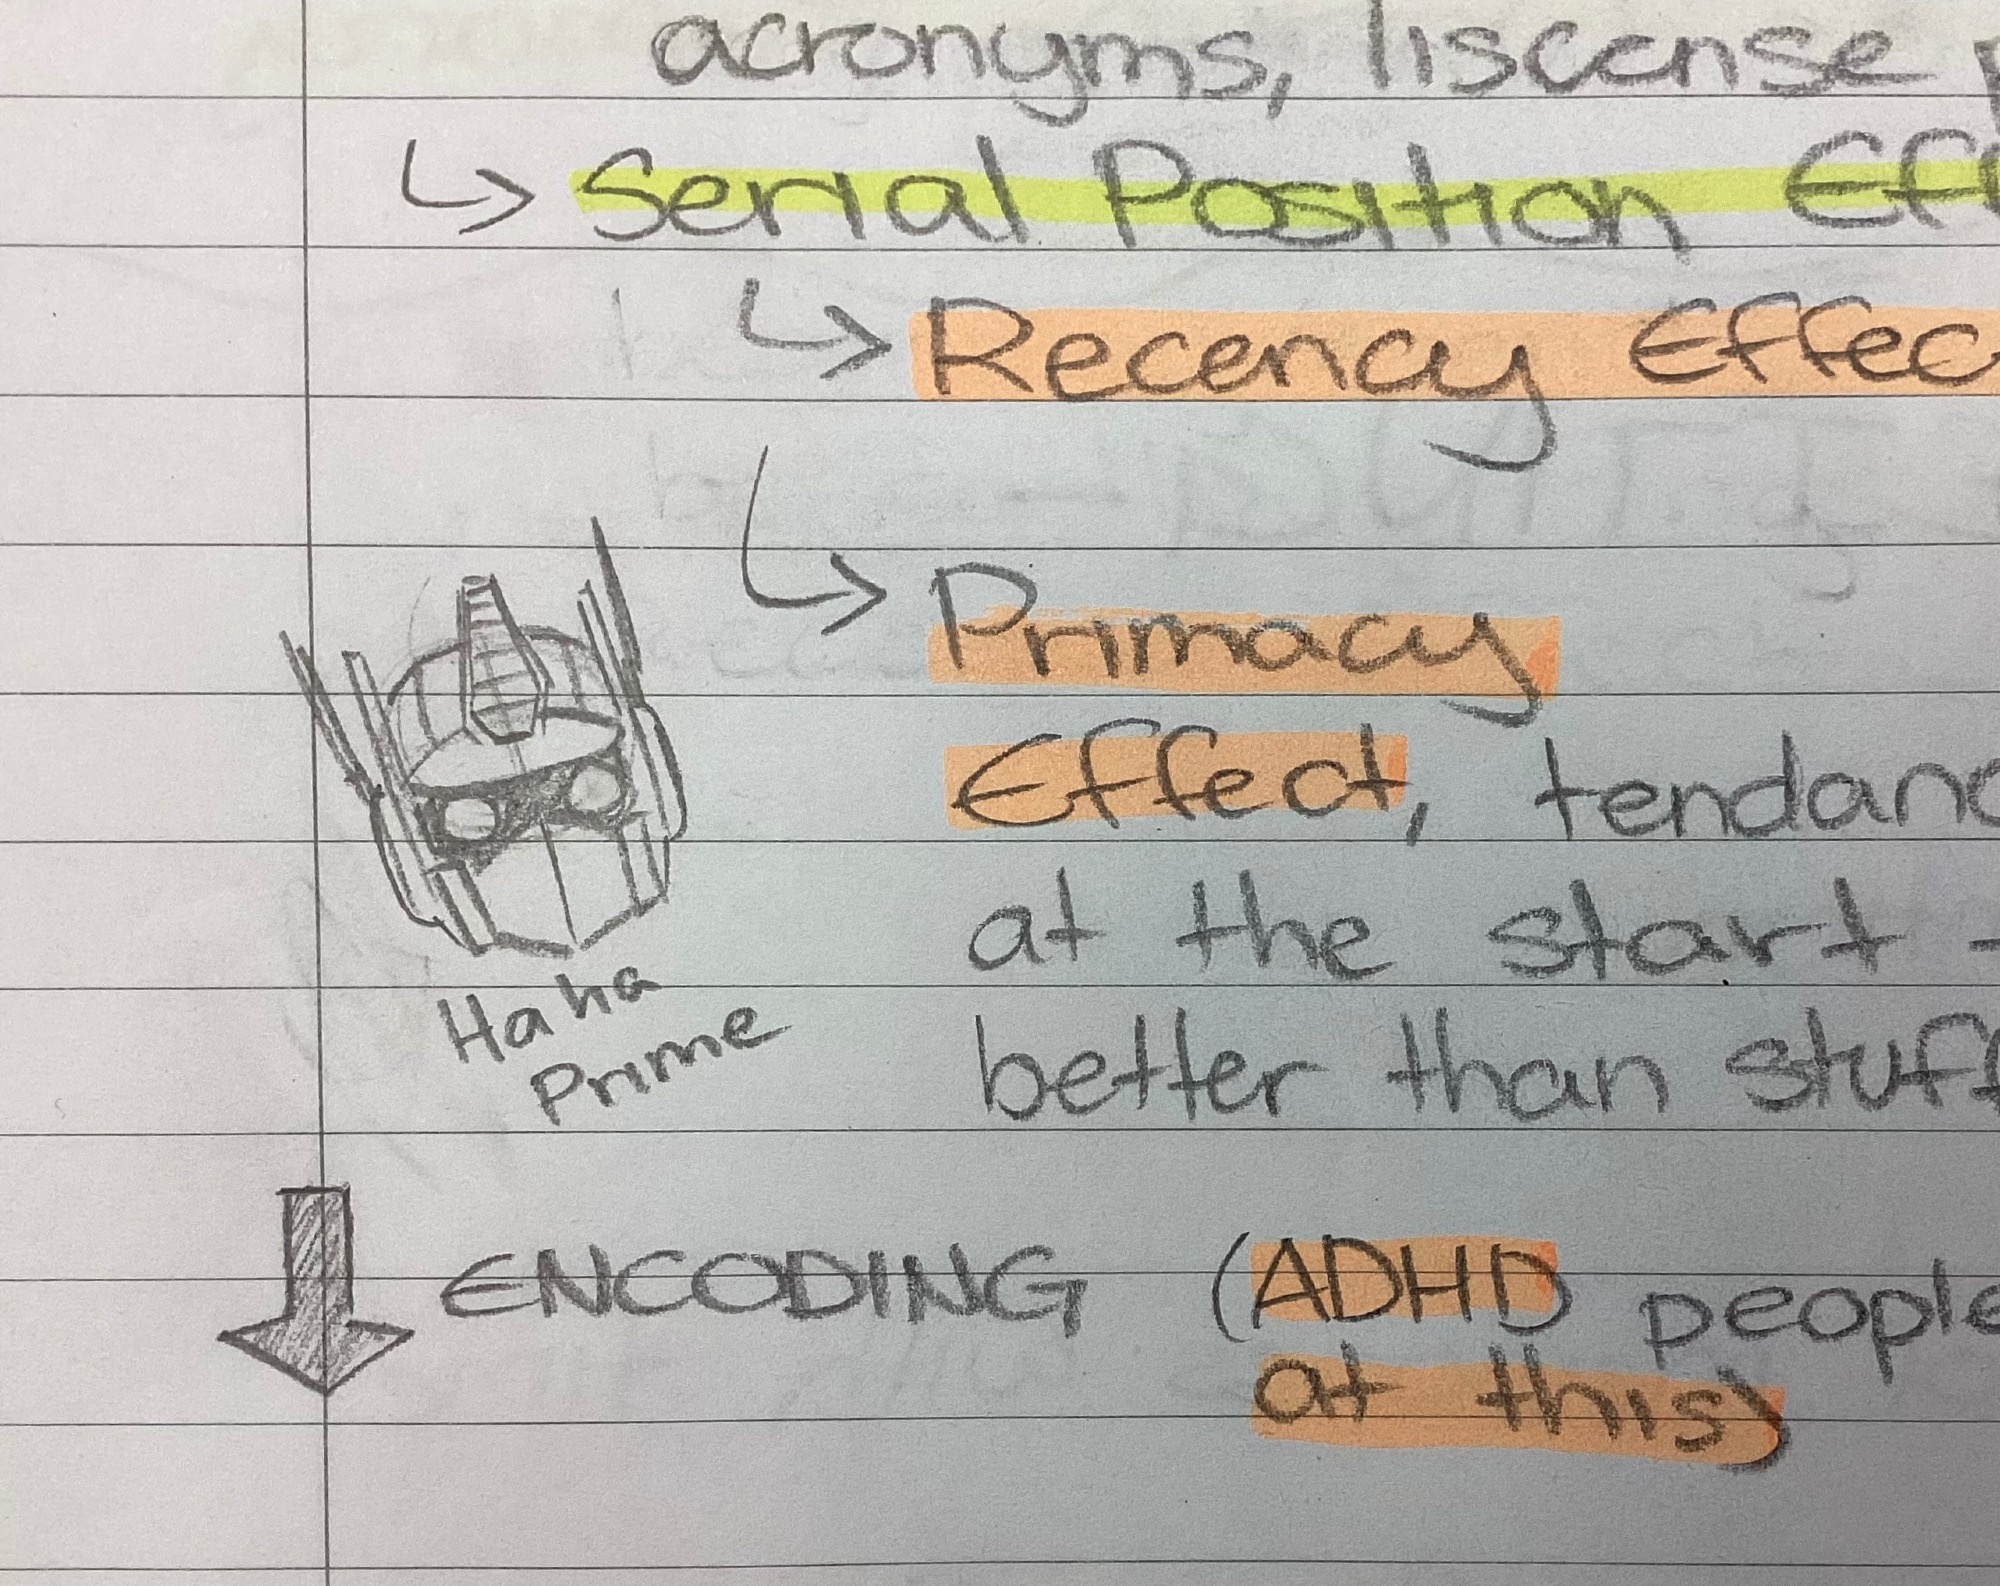 acronyms, liscense p
↳ Serial Position Eff
↳ Recency Effec
↳ Primacy
Effect, tendanc
at the start
better than stuff
Haha
Prime
ENCODING (ADHD people
at this)